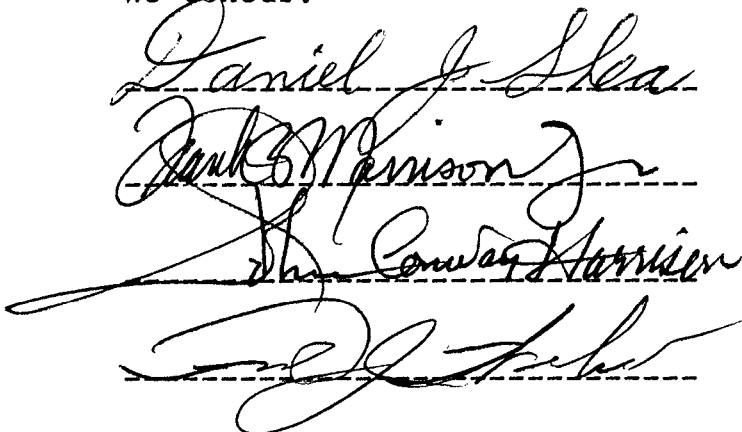 We concur:
Daniel J. Shea
Frank B Morrison Jr
John Conway Harrison
J.